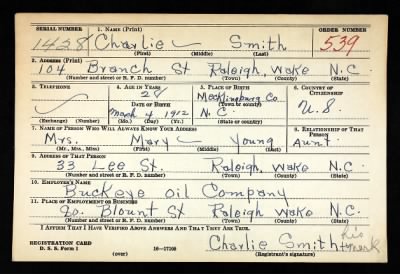 SERIAL NUMBER 1. NAME (Print) ORDER NUMBER
1428 Charlie — Smith 539
(First) (Middle) (Last)
2. ADDRESS (Print)
104 Branch St Raleigh, Wake N.C.
(Number and street or R. F. D. number) (Town) (County) (State)
3. TELEPHONE 4. AGE IN YEARS 5. PLACE OF BIRTH 6. COUNTRY OF CITIZENSHIP
28 Mecklinburg Co
DATE OF BIRTH (Town or county)
March 4, 1912 N.C. U.S.
(Exchange) (Number) (Mo.) (Day) (Yr.) (State or country)
7. NAME OF PERSON WHO WILL ALWAYS KNOW YOUR ADDRESS 8. RELATIONSHIP OF THAT PERSON
Mrs. Mary — Young Aunt
(Mr., Mrs., Miss) (First) (Middle) (Last)
9. ADDRESS OF THAT PERSON
33 Lee St. Raleigh Wake N.C.
(Number and street or R. F. D. number) (Town) (County) (State)
10. EMPLOYER'S NAME
Buckeye oil Company
11. PLACE OF EMPLOYMENT OR BUSINESS
So. Blount St Raleigh Wake N.C.
(Number and street or R. F. D. number) (Town) (County) (State)
I AFFIRM THAT I HAVE VERIFIED ABOVE ANSWERS AND THAT THEY ARE TRUE.
his
Charlie Smith + mark
REGISTRATION CARD
D. S. S. Form 1 (over) 16—17105 (Registrant's signature)